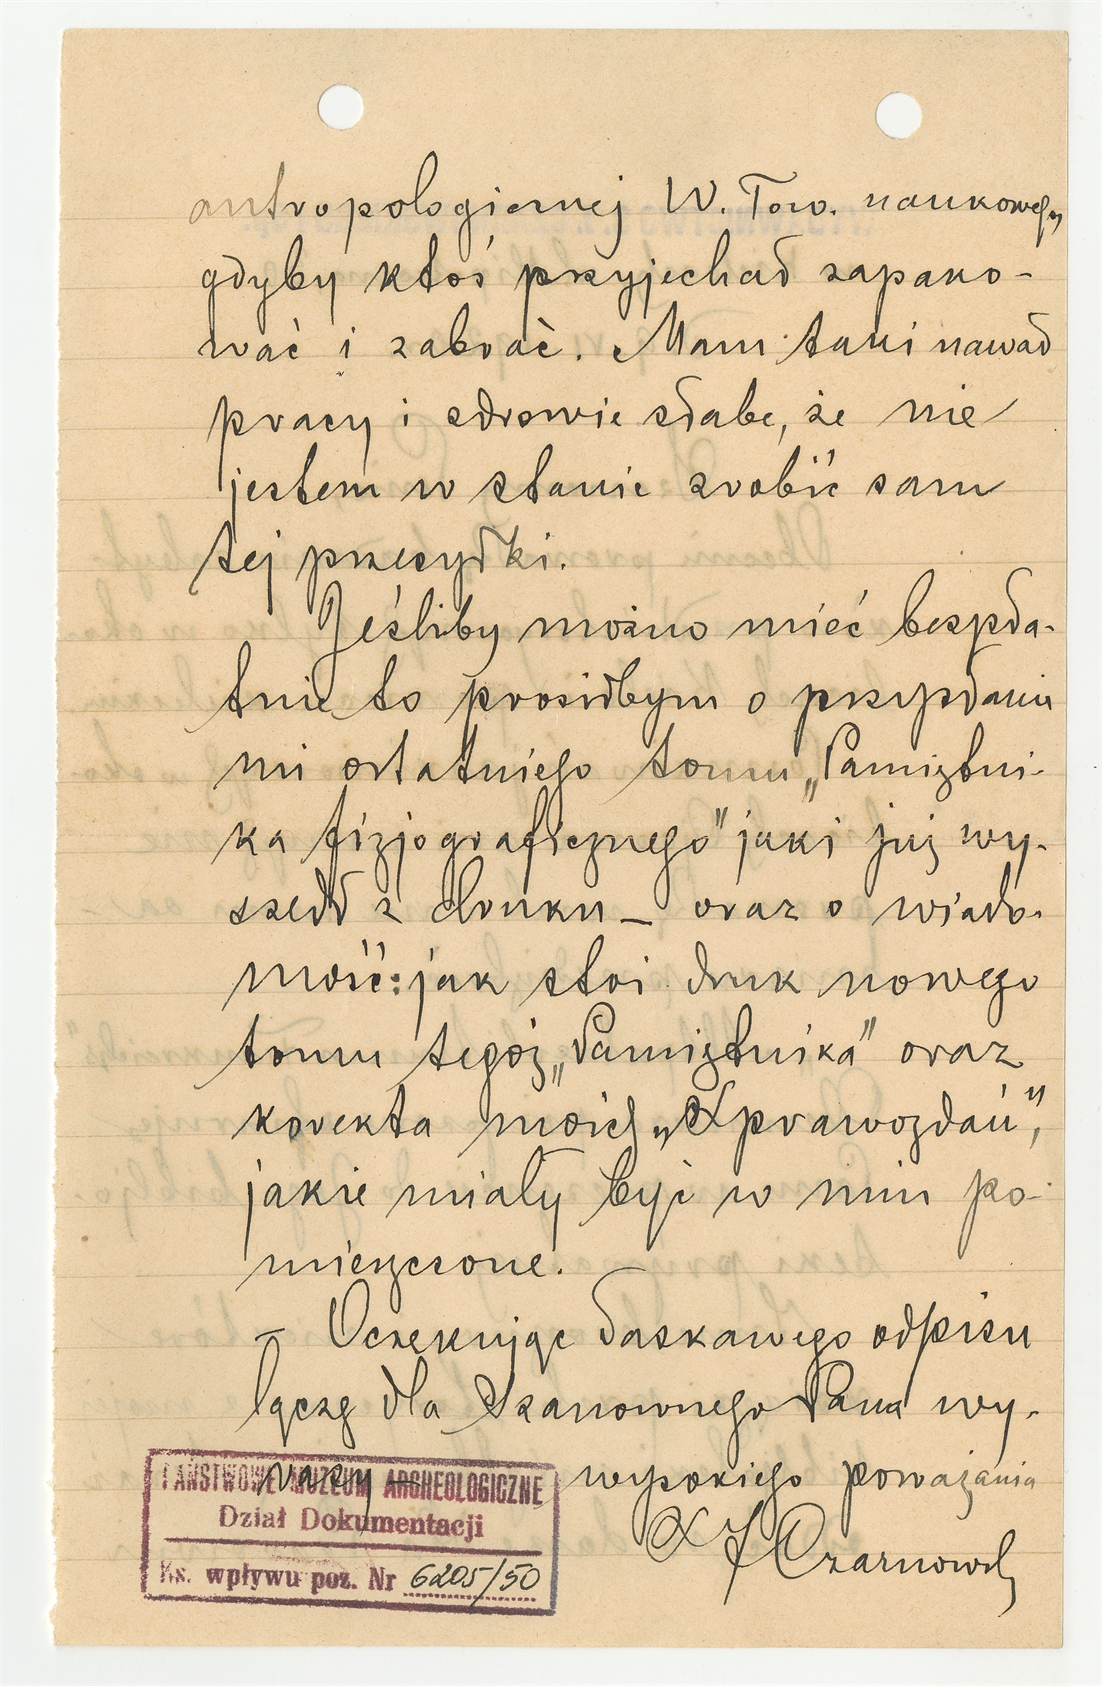 antropologicznej W. Tow. naukowego,
gdyby ktoś przyjechał zapako-
wać i zabrać. Mam taki nawał
pracy i zdrowie słabe, że nie
jestem w stanie zrobić sam
tej przesyłki.
Jeśliby można mieć bezpła-
tnie to prosiłbym o przysłanie
mi ostatniego tomu „Pamiętni-
ka fizjograficznego" jaki już wy-
szedł z druku – oraz o wiado-
mość: jak stoi druk nowego
tomu tegoż „Pamiętnika" oraz
korekta moich „Sprawozdań",
jakie miały być w nim po-
mieszczone.
– Oczekując łaskawego odpisu
łączę dla Szanownego Pana wy-
razy wysokiego poważania
S J Czarnowski
PAŃSTWOWE MUZEUM ARCHEOLOGICZNE
Dział Dokumentacji
Ks. wpływu poz. Nr 6205/50